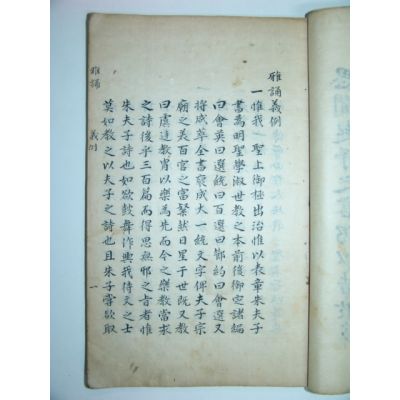 雅誦義例
一惟我 聖上御極出治惟以表章朱夫子
書爲明聖學淑世教之本前後御定諸編
曰會英曰選統曰百選曰節約曰會選又
將成萃全書裒成大一統文字俾夫子宗
廟之美百官之富繄然日星于世既又教
曰虞廷教胄以樂爲先而今之樂教當求
之詩後乎三百篇而得思無邪之旨者惟
朱夫子詩也如欲鼓舞作興我待文之士
莫如教之以夫子之詩也且朱子嘗欲取
雅誦
義例
一